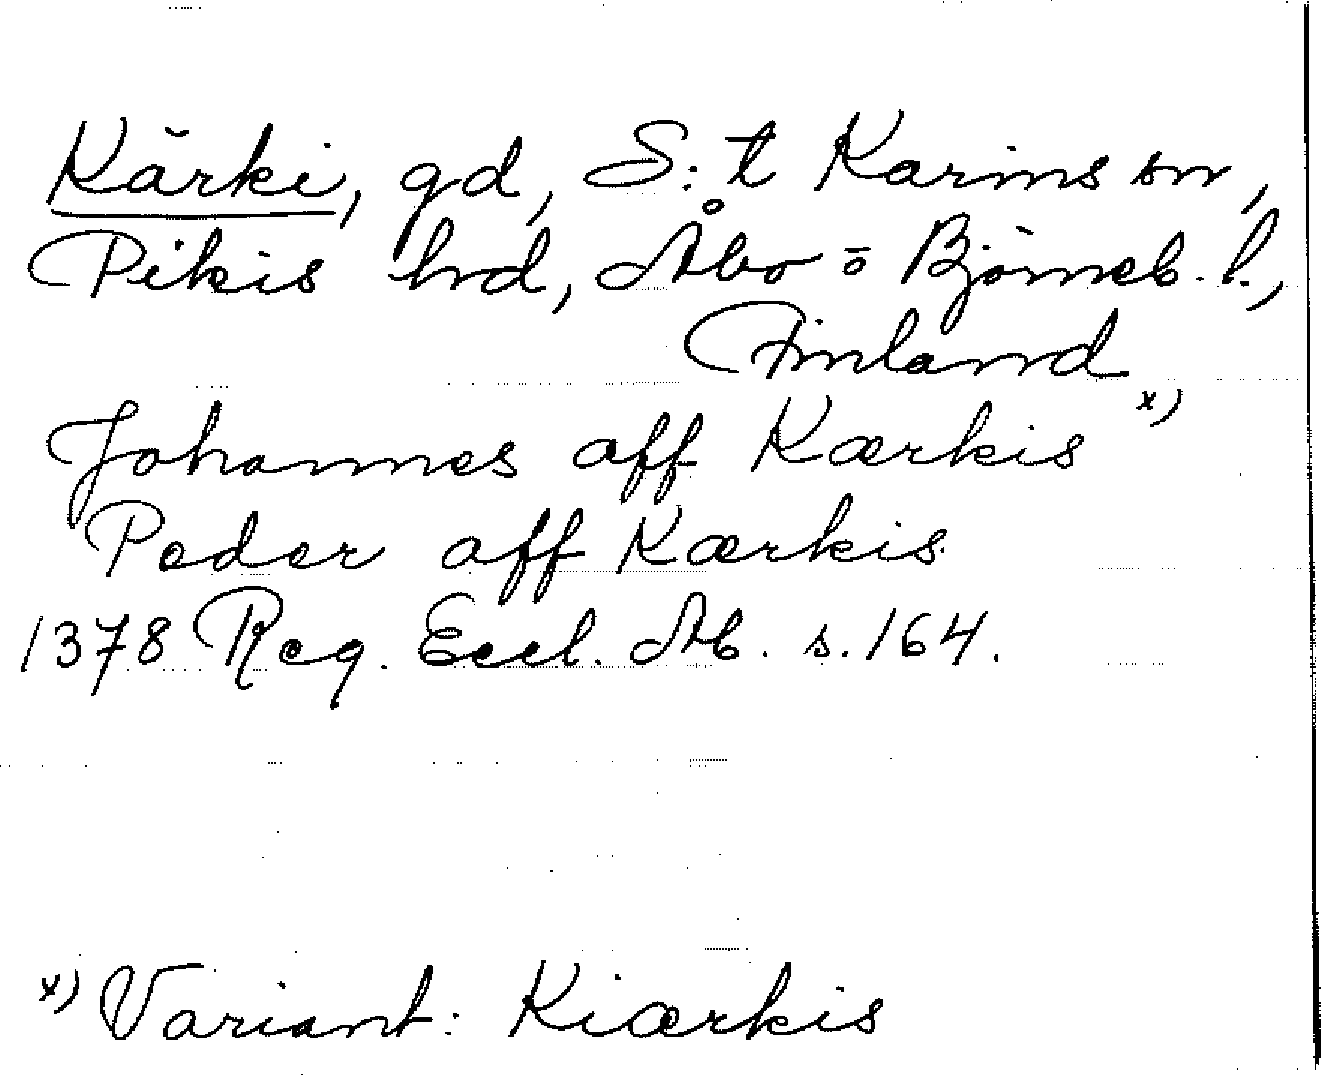 Kärki, gd, S:t Karins sn,
Pikis hrd, Åbo = Björneb. l.,
Finland
Johannes aff Kærkis x)
Peder aff Kærkis
1378 Reg. Eccl. Ab. s. 164.
x) Variant: Kiærkis